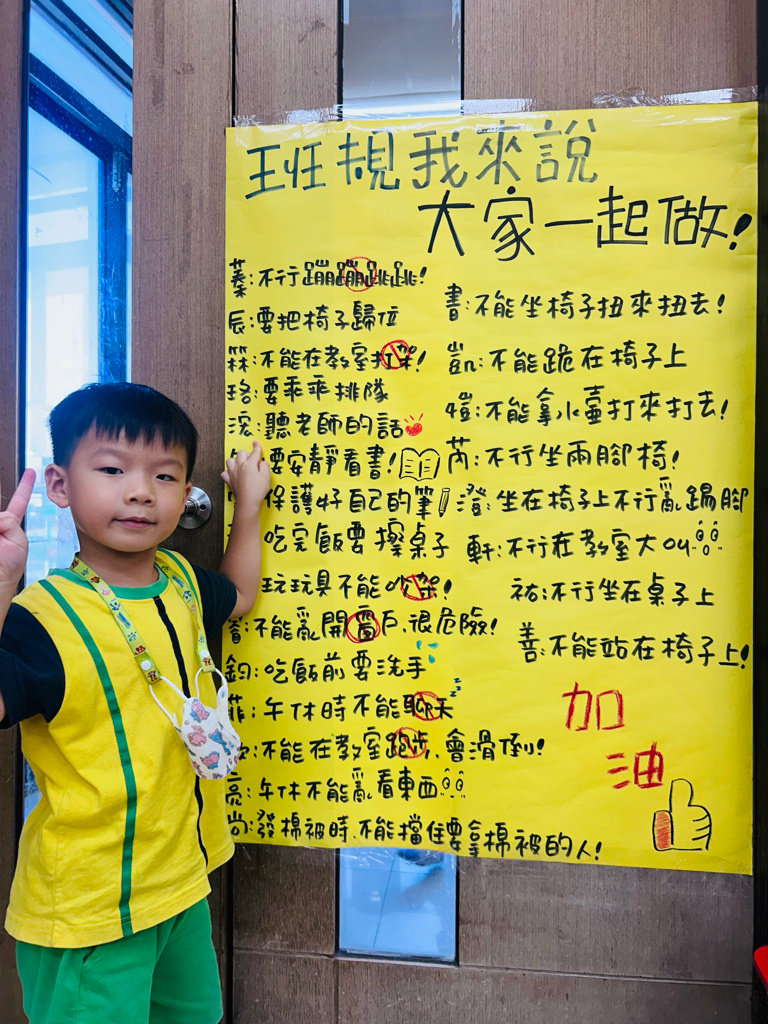 班規我來說
大家一起做!
蓁:不行蹦蹦跳跳!
辰:要把椅子歸位
霖:不能在教室打架!
珞:要乖乖排隊
浤:聽老師的話
要安靜看書!
保護好自己的筆
吃完飯要擦桌子
玩玩具不能吵架!
不能亂開窗戶,很危險!
鈞:吃飯前要洗手
菲:午休時不能聊天
不能在教室跑步,會滑倒!
亮:午休不能亂看東西
尚:發棉被時,不能擋住要拿棉被的人!
書:不能坐椅子扭來扭去!
凱:不能跪在椅子上
愷:不能拿水壺打來打去!
芮:不行坐兩腳椅!
澄:坐在椅子上不行亂踢腳
軒:不行在教室大叫
祐:不行坐在桌子上
善:不能站在椅子上!
加
油